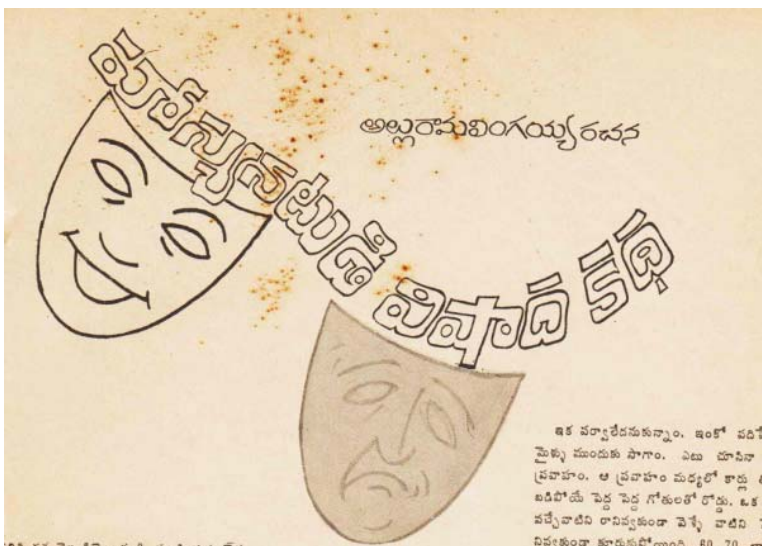 హాస్యనటుడి విషాద కథ
అల్లురామలింగయ్య రచన
ఇక పర్వాలేదనుకున్నాం. ఇంకో
మైళ్ళు ముందుకు సాగాం. ఎటు చూసినా
ప్రవాహం. ఆ ప్రవాహం మధ్యలో కార్లు
బడిపోయే పెద్ద పెద్ద గోతులతో రోడ్డు. ఒక
వచ్చేవాటిని రానివ్వకుండా వెళ్ళే వాటిని
నివ్వకుండా కూరుకుపోయింది. 60 70